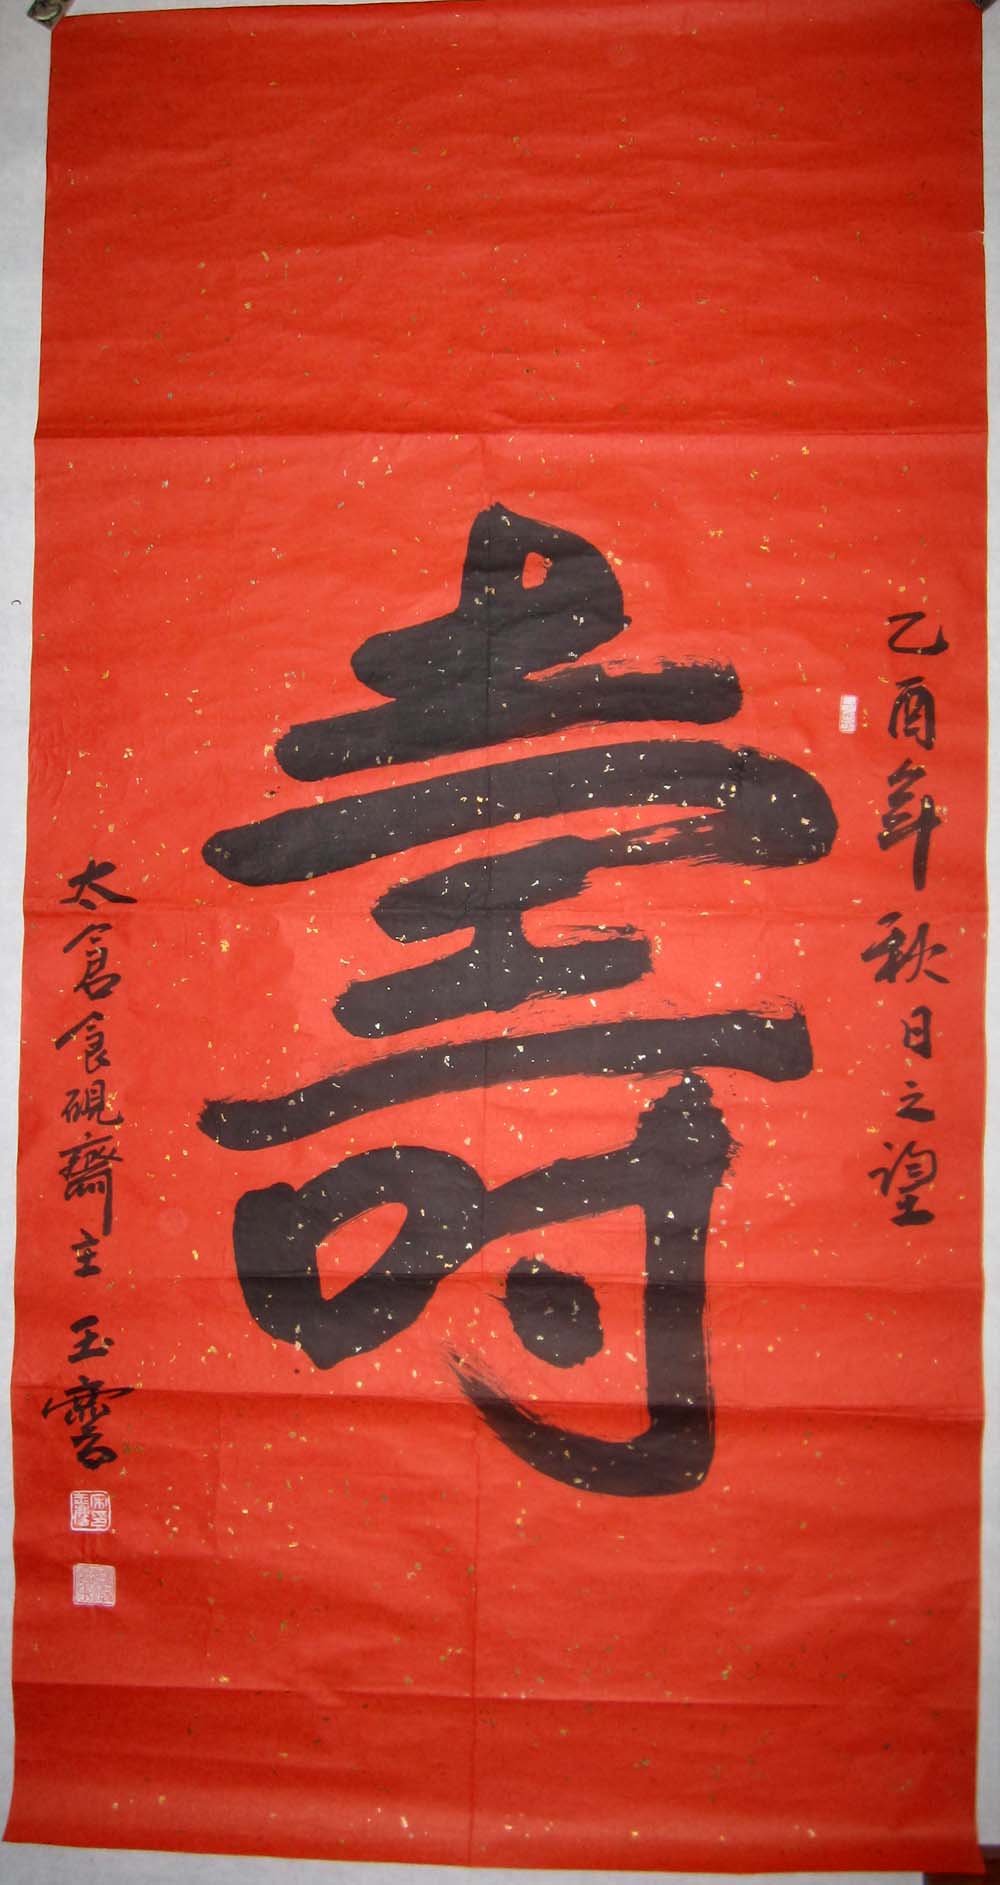 乙酉年秋日之望
壽
太倉食硯齋主玉